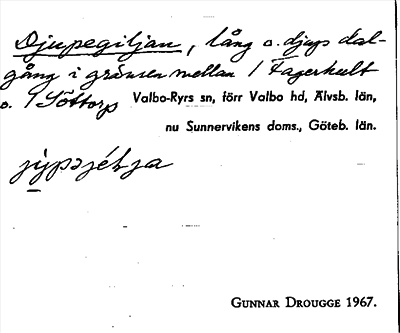 Djupegiljan, lång o. djup dal-
gång i gränsen mellan 1 Fagerhult
o. 1 Söttorp Valbo-Ryrs sn, förr Valbo hd, Älvsb. län,
nu Sunnervikens doms., Göteb. län.
GUNNAR DROUGGE 1967.